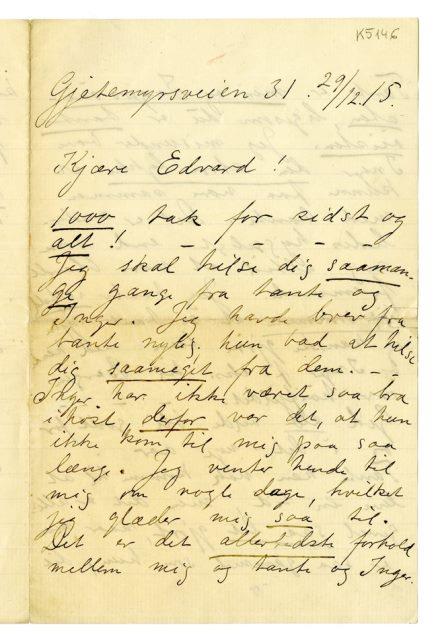 K5146
Gjetemyrsveien 31. 29/12. 15.
Kjære Edvard!
1000 tak for sidst og
alt! – – – –
Jeg skal hilse dig saaman-
ge gange fra tante og
Inger. Jeg havde brev fra
tante nylig. hun bad at hilse
dig saameget fra dem. – –
Inger har ikke været saa bra
i høst, derfor var det, at hun
ikke kom til mig paa saa
længe. Jeg venter hende til
mig om nogle dage, hvilket
jeg glæder mig saa til.
Det er det allerbedste forhold
mellem mig og tante og Inger.